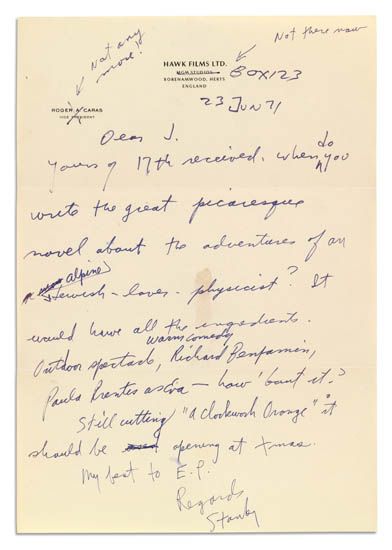 Not any
more!
Not there now
HAWK FILMS LTD.
MGM STUDIOS BOX 123
BOREHAMWOOD, HERTS
ENGLAND
ROGER A. CARAS
VICE PRESIDENT
23 JUN 71
Dear J.
Yours of 17th received. When do you
write the great picaresque
novel about the adventures of an
alpine
Jewish-lover-physicist? It
would have all the ingredients.
warm comedy
Outdoor spectacle, Richard Benjamin,
Paula Prentiss as Eva — how 'bout it?
Still cutting "A Clockwork Orange" it
should be opening at Xmas.
My best to E.P.
Regards
Stanley